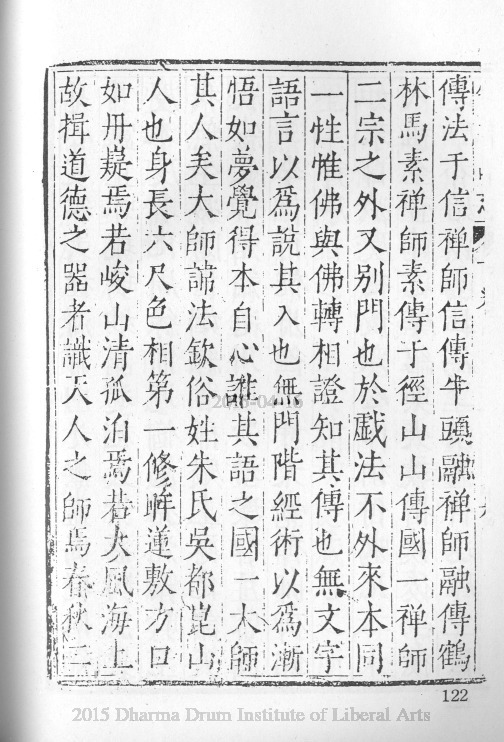 傳法于信禪師信傳牛頭融禪師融傳鶴
林馬素禪師素傳于徑山山傳國一禪師
二宗之外又别門也於戲法不外來本同
一性惟佛與佛轉相證知其傳也無文字
語言以爲說其入也無門階經術以爲漸
悟如夢覺得本自心誰其語之國一大師
其人矣大師諱法欽俗姓朱氏吳都崑山
人也身長六尺色相第一修眸蓮敷方口
如丹嶷焉若峻山清孤泊焉若大風海上
故揖道德之器者識天人之師焉春秋二
122
2015 Dharma Drum Institute of Liberal Arts